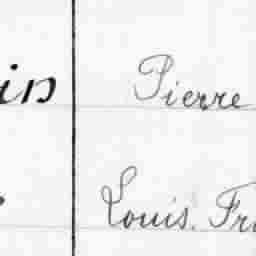 in Pierre
Louis. Fr